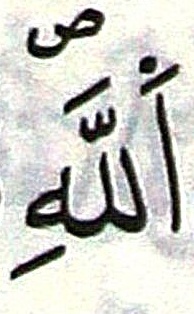 اَللَّهِ ص